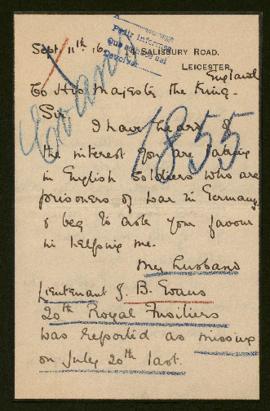 Sept 11th 16
14 SALISBURY ROAD,
LEICESTER,
England
To His Majesty the King.
Sir
I have heard of
the interest you are taking
in English Soldiers who are
prisoners of war in Germany,
& beg to ask your favour
in helping me.
My husband
Lieutenant J. B. Evans
20th Royal Fusiliers
was reported as missing
on July 20th last.
Evans
1855